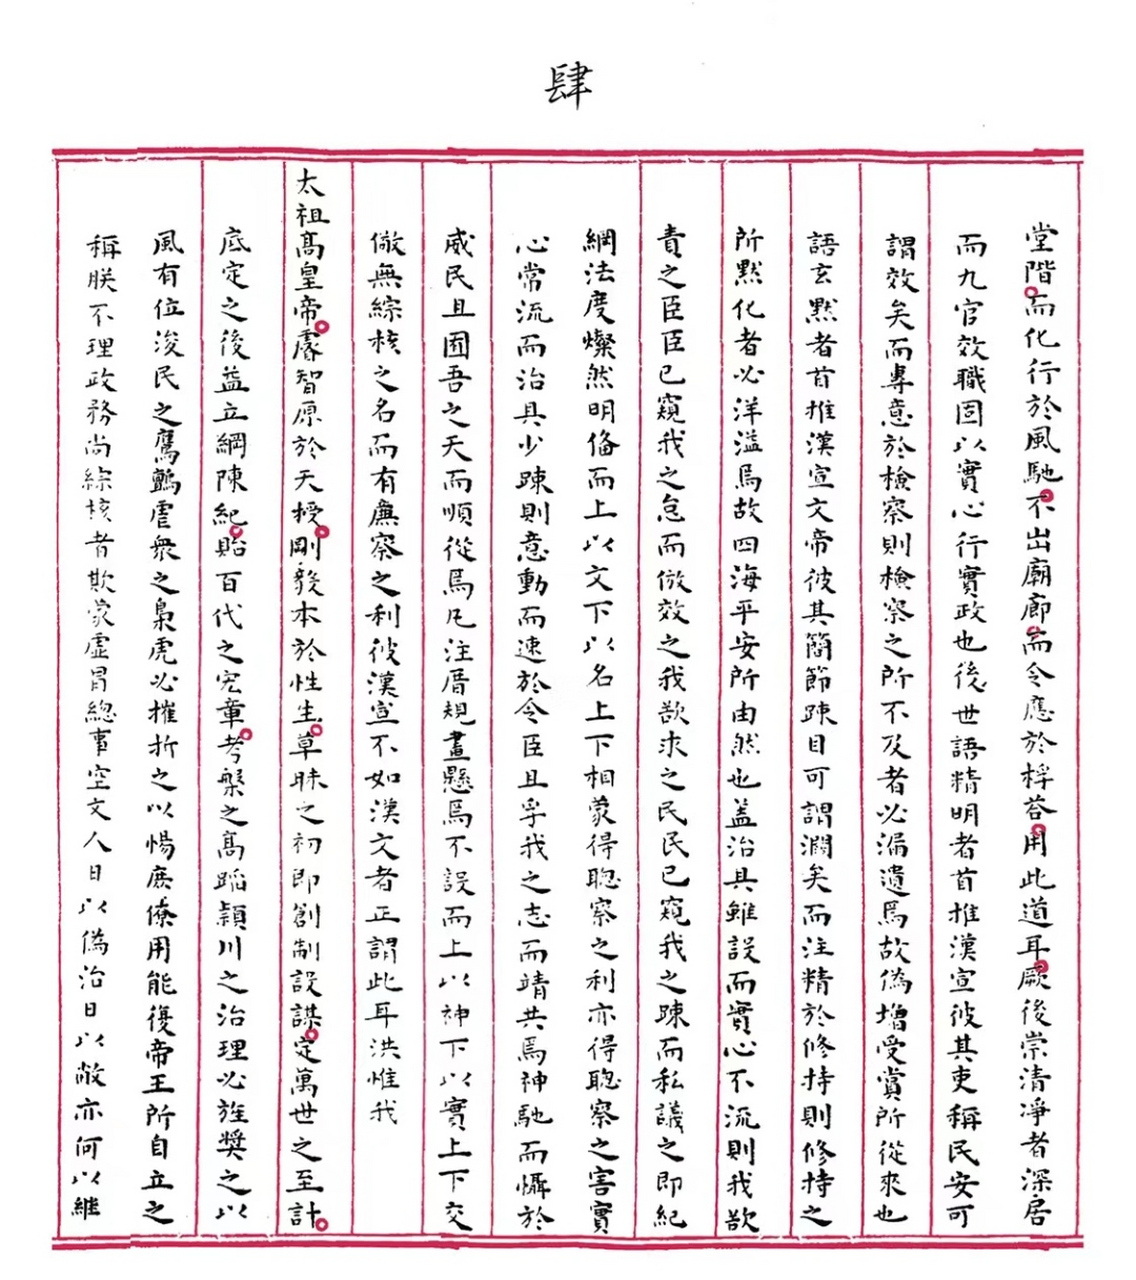 肆
堂階而化行於風馳不出廟廊而令應於桴荅用此道耳厥後崇清凈者深居
而九官效職固以實心行實政也後世語精明者首推漢宣彼其吏稱民安可
謂效矣而專意於檢察則檢察之所不及者必漏遺焉故偽增受賞所從來也
語玄默者首推漢宣文帝彼其簡節踈目可謂濶矣而注精於修持則修持之
所默化者必洋溢焉故四海平安所由然也盖治具雖設而實心不流則我欲
責之臣臣已窺我之怠而倣效之我欲求之民民已窺我之踈而私議之即紀
綱法度燦然明俻而上以文下以名上下相蒙得聦察之利亦得聦察之害實
心常流而治具少踈則意動而速於令臣且孚我之志而靖共焉神馳而懾於
威民且囿吾之天而順從焉凡注厝規畫懸焉不設而上以神下以實上下交
儆無綜核之名而有廉察之利彼漢宣不如漢文者正謂此耳洪惟我
太祖髙皇帝睿智原於天授剛毅本於性生草昧之初即創制設謀定萬世之至計
底定之後益立綱陳紀貽百代之宏章考槃之髙蹈潁川之治理必旌奬之以
風有位浚民之鷹鸇虐衆之梟虎必摧折之以惕庶僚用能復帝王所自立之
稱朕不理政務尚綜核者欺蒙虛冒總事空文人日以偽治日以敝亦何以継